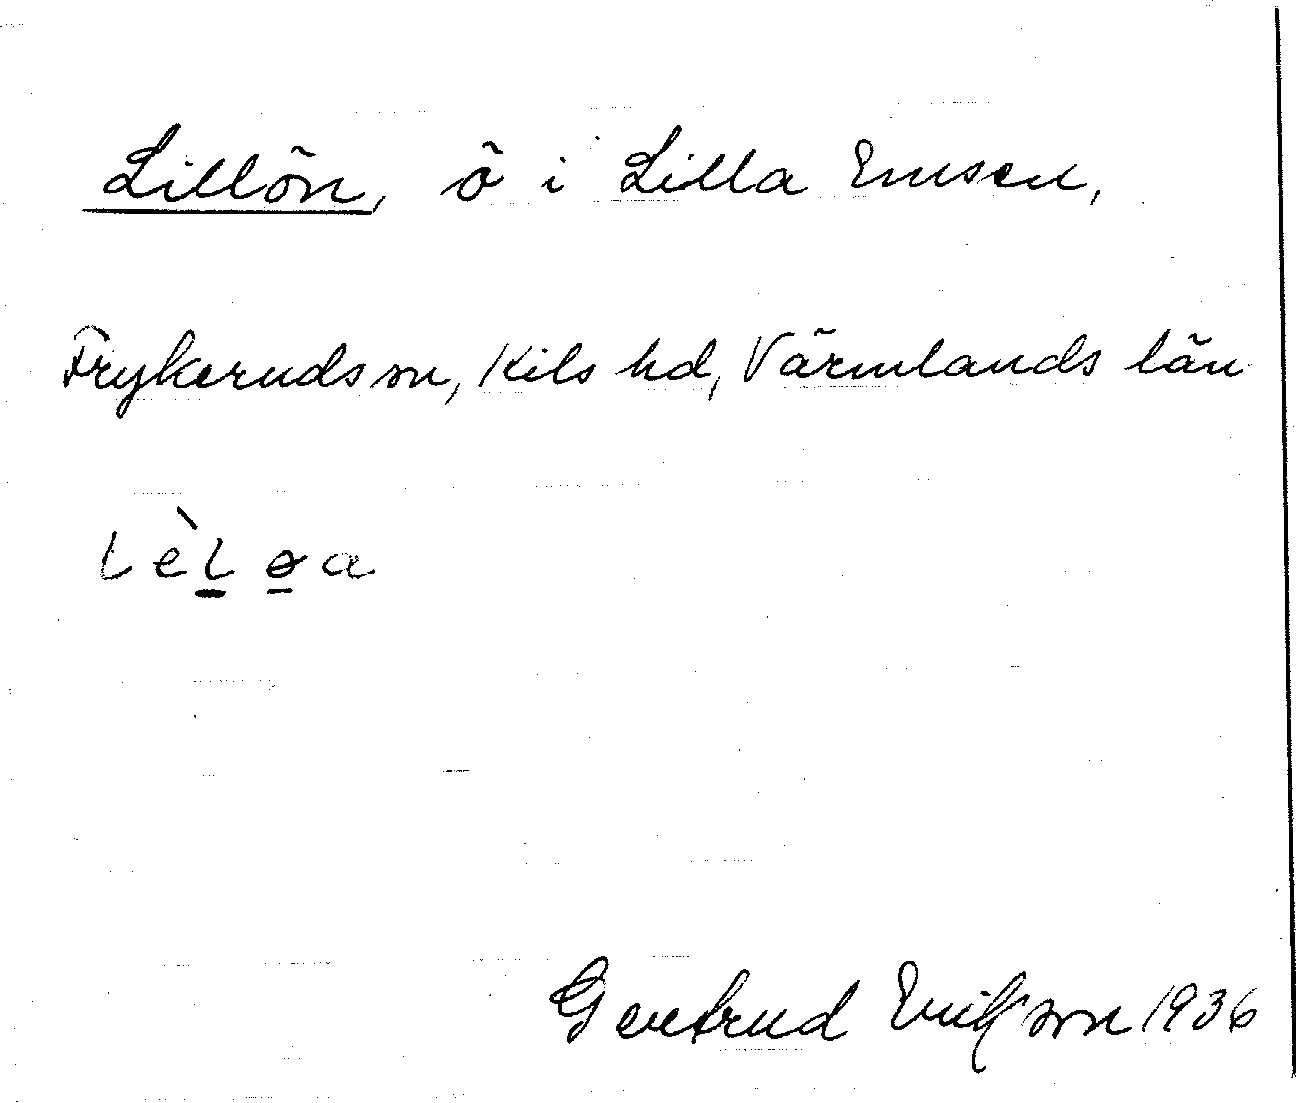 Lillön, ö i Lilla Emsen,
Frykeruds sn, Kils hd, Värmlands län
lèl̠ ø̠a
Gertrud Eriksson 1936